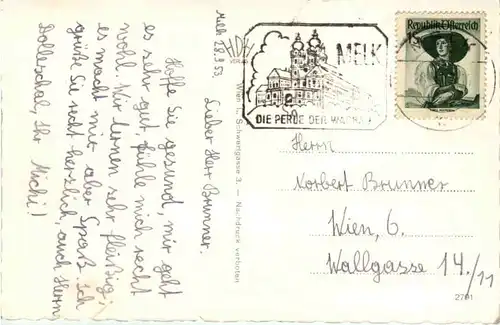 Melk 28.9.53
Lieber Herr Brunner.
Hoffe Sie gesund, mir geht
es sehr gut, fühle mich recht
wohl. Wir lernen sehr fleißig,
es macht mir aber Spaß. Ich
grüße Sie recht herzlich, auch Herrn
Dolleschal, Ihr Michi!
HDH
VERLAG
Wien, Schwantgasse 3. Nachdruck verboten
MELK
DIE PERLE DER WACHAU
Republik Österreich
Herrn
Norbert Brunner
Wien, 6.
Wallgasse 14./11
2791